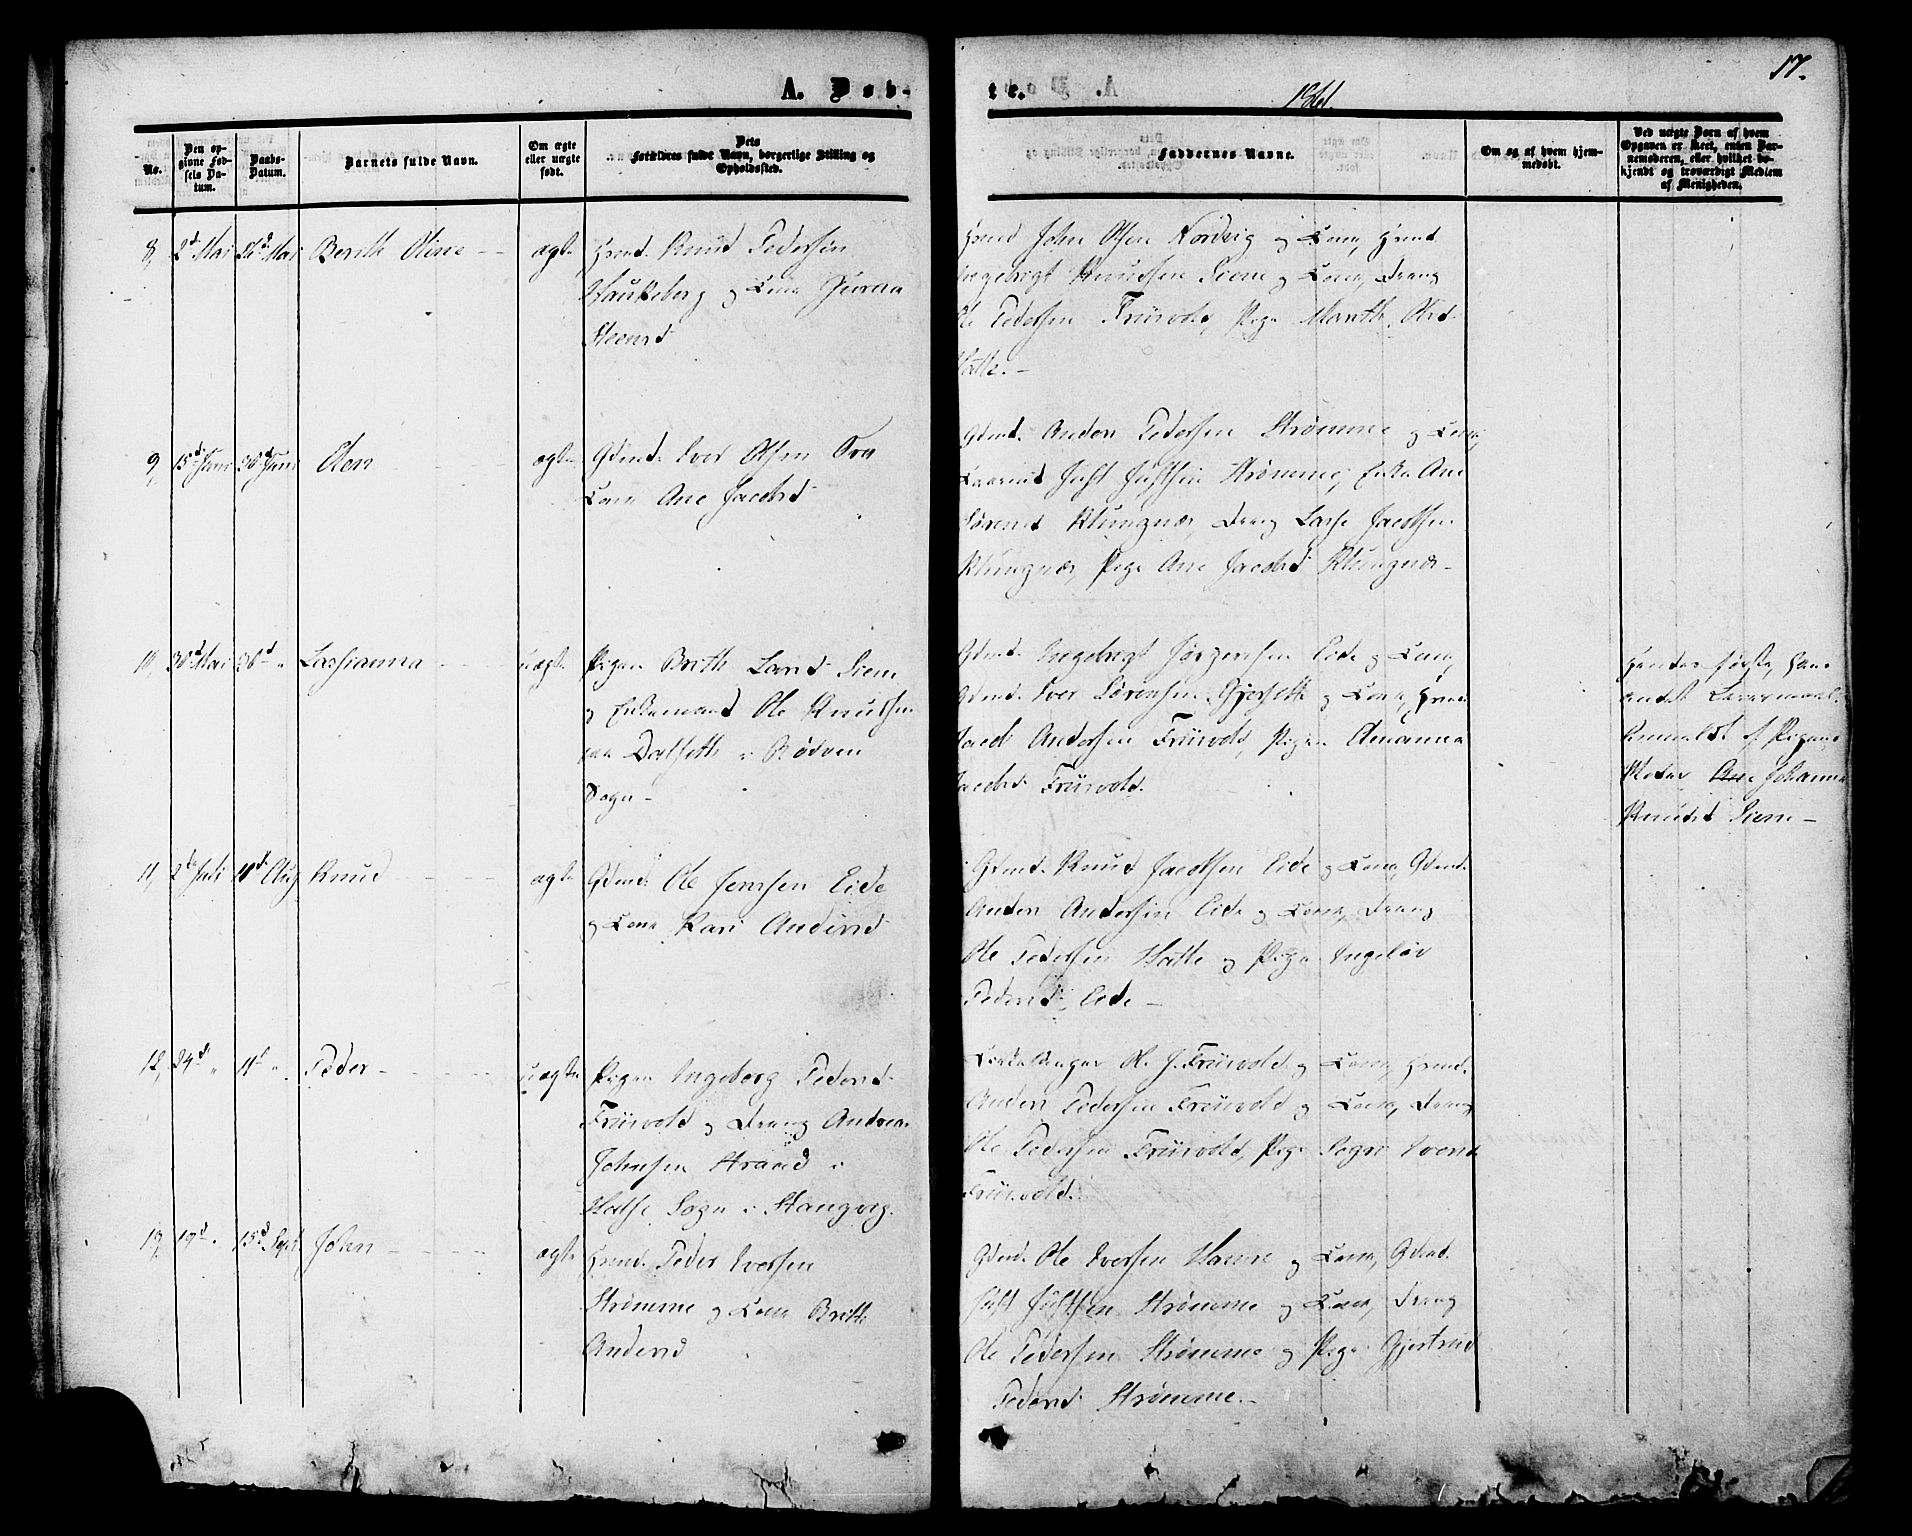 17.
A. Døb-
te.
1861.
No.
Den op-
givne Fød-
sels Da-
tum.
Daabs-
Datum.
Barnets fulde Navn.
Om ægte
eller uægte
født.
Dets
Forældres fulde Navn, borgerlige Stilling og
Opholdssted.
Faddernes Navne.
Om og af hvem hjem-
medøbt.
Ved uægte Børn af hvem
Opgaven er skeet, enten Bar-
nemoderen, eller hvilket be-
kjendt og troværdigt Medlem
af Menigheden.
8, 2d Mai 26d Mai Berith Oline ægte Huusd. Knud Pedersen
Haukeberg og Kone
Steensd
John Olsen Nordvig og Kone,
Ingebrigt Knudsen Siem og Kone, Dreng
Ole Pedersen Friisvold, Pige Marith
Hatle.
9, 15d Juni 30d Juni Elen ægte Gdmd. Iver Olsen
Kone Ane Jacobsd
Gdmd. Anders Pedersen Strømme og Kone,
Just Justsen Strømme, Enke Ane
Sørensd Klungnæs, Dreng Lasse Jacobsen
Klungnæs, Pige Ane Jacobsd Klungnæs
10, 30d Mai 30d " Lassianna uægte Pigen Brith Larsd Siem
og Enkemand Ole Knudsen
paa Dalseth i Rødven
Sogn
Gdmd. Ingebrigt Jørgensen Eide og Kone,
Gdmd. Iver Sørensen Gjerseth og Kone,
Jacob Andersen Friisvold, Pigen
Jacobsd Friisvold.
Hendes første, hans
andet Leiermaal.
Anmeldt af Pigens
Moder Ane Johanna
Knudsd Siem
11, 2d Juli 11d Aug Knud ægte Gdmd. Ole Jensen Eide
og Kone Kari Andersd
Knud Jacobsen Eide og Kone, Gdmd.
Anders Andersen Eide og Kone, Dreng
Ole Pedersen Hatle og Pige Ingeløv
Pedersd Eide
12, 24d " 11d " Peder uægte Pigen Ingeborg Pedersd
Friisvold og Dreng Andreas
Johnsen Strand i
Halse Sogn i Stangvig.
Ole J. Friisvold og Kone,
Anders Pedersen Friisvold og Kone, Dreng
Ole Pedersen Friisvold, Pige
Friisvold.
19d " 15d Sept John ægte Peder Iversen
Strømme og Kone Brith
Andersd
Gdmd. Ole Iversen Havne og Kone, Gdmd.
Just Justsen Strømme og Kone, Dreng
Ole Pedersen Strømme og Pige Gjertrud
Pedersd Strømme.